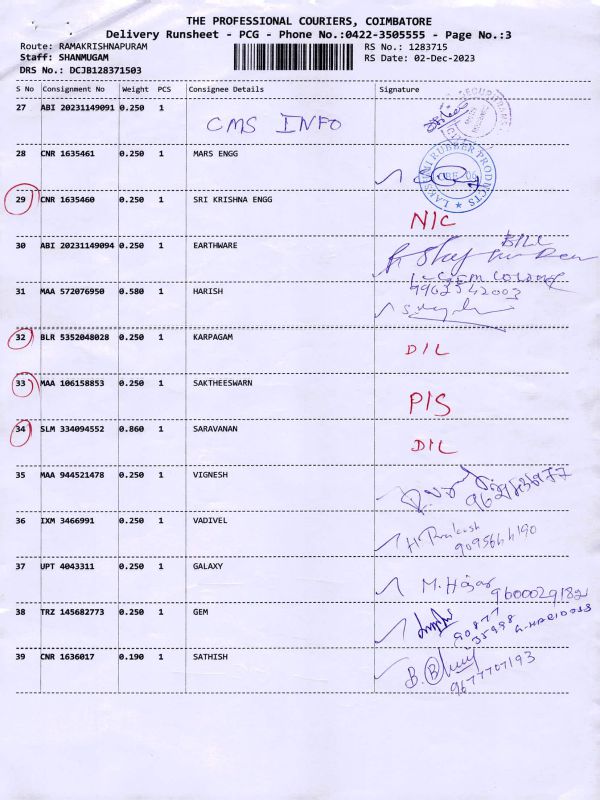 THE PROFESSIONAL COURIERS, COIMBATORE
Delivery Runsheet - PCG - Phone No.:0422-3505555 - Page No.:3
Route: RAMAKRISHNAPURAM RS No.: 1283715
Staff: SHANMUGAM RS Date: 02-Dec-2023
DRS No.: DCJB128371503
S No Consignment No Weight PCS Consignee Details Signature
27 ABI 20231149091 0.250 1 CMS INFO
28 CNR 1635461 0.250 1 MARS ENGG
LAKSHMI RUBBER PRODUCTS
29 CNR 1635460 0.250 1 SRI KRISHNA ENGG N/C
30 ABI 20231149094 0.250 1 EARTHWARE
31 MAA 572076950 0.580 1 HARISH
32 BLR 5352048028 0.250 1 KARPAGAM D/L
33 MAA 106158853 0.250 1 SAKTHEESWARN P/S
34 SLM 334094552 0.860 1 SARAVANAN D/L
35 MAA 944521478 0.250 1 VIGNESH
36 IXM 3466991 0.250 1 VADIVEL H. Prakash
37 UPT 4043311 0.250 1 GALAXY M. Hajar 9600029182
38 TRZ 145682773 0.250 1 GEM 90877
35998 G. HARIDOSS
39 CNR 1636017 0.190 1 SATHISH
9677707193